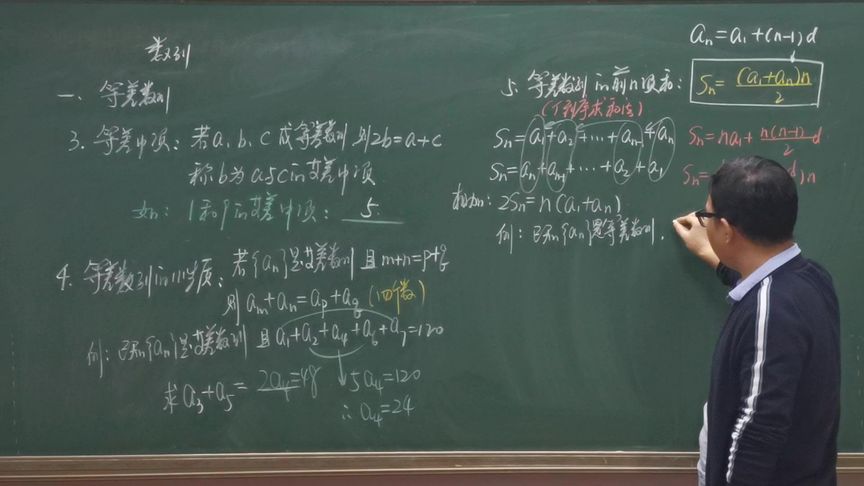 数列
一、等差数列
3. 等差中项：若a、b、c成等差数列 则2b=a+c
称b为a与c的等差中项
如：1和9的等差中项：5
4. 等差数列的性质：若{an}是等差数列 且m+n=p+q
则 am+an=ap+aq (四个数)
例：已知{an}是等差数列 且 a1+a2+a4+a6+a7=120
求a3+a5= 2a4=48
5a4=120
∴a4=24
an=a1+(n-1)d
5. 等差数列的前n项和：
Sn=(a1+an)n/2
(倒序求和法)
Sn=a1+a2+…+an-1+an
Sn=an+an-1+…+a2+a1
相加：2Sn=n(a1+an)
例：已知{an}是等差数列，
Sn=na1+n(n-1)/2 d
Sn=
)n